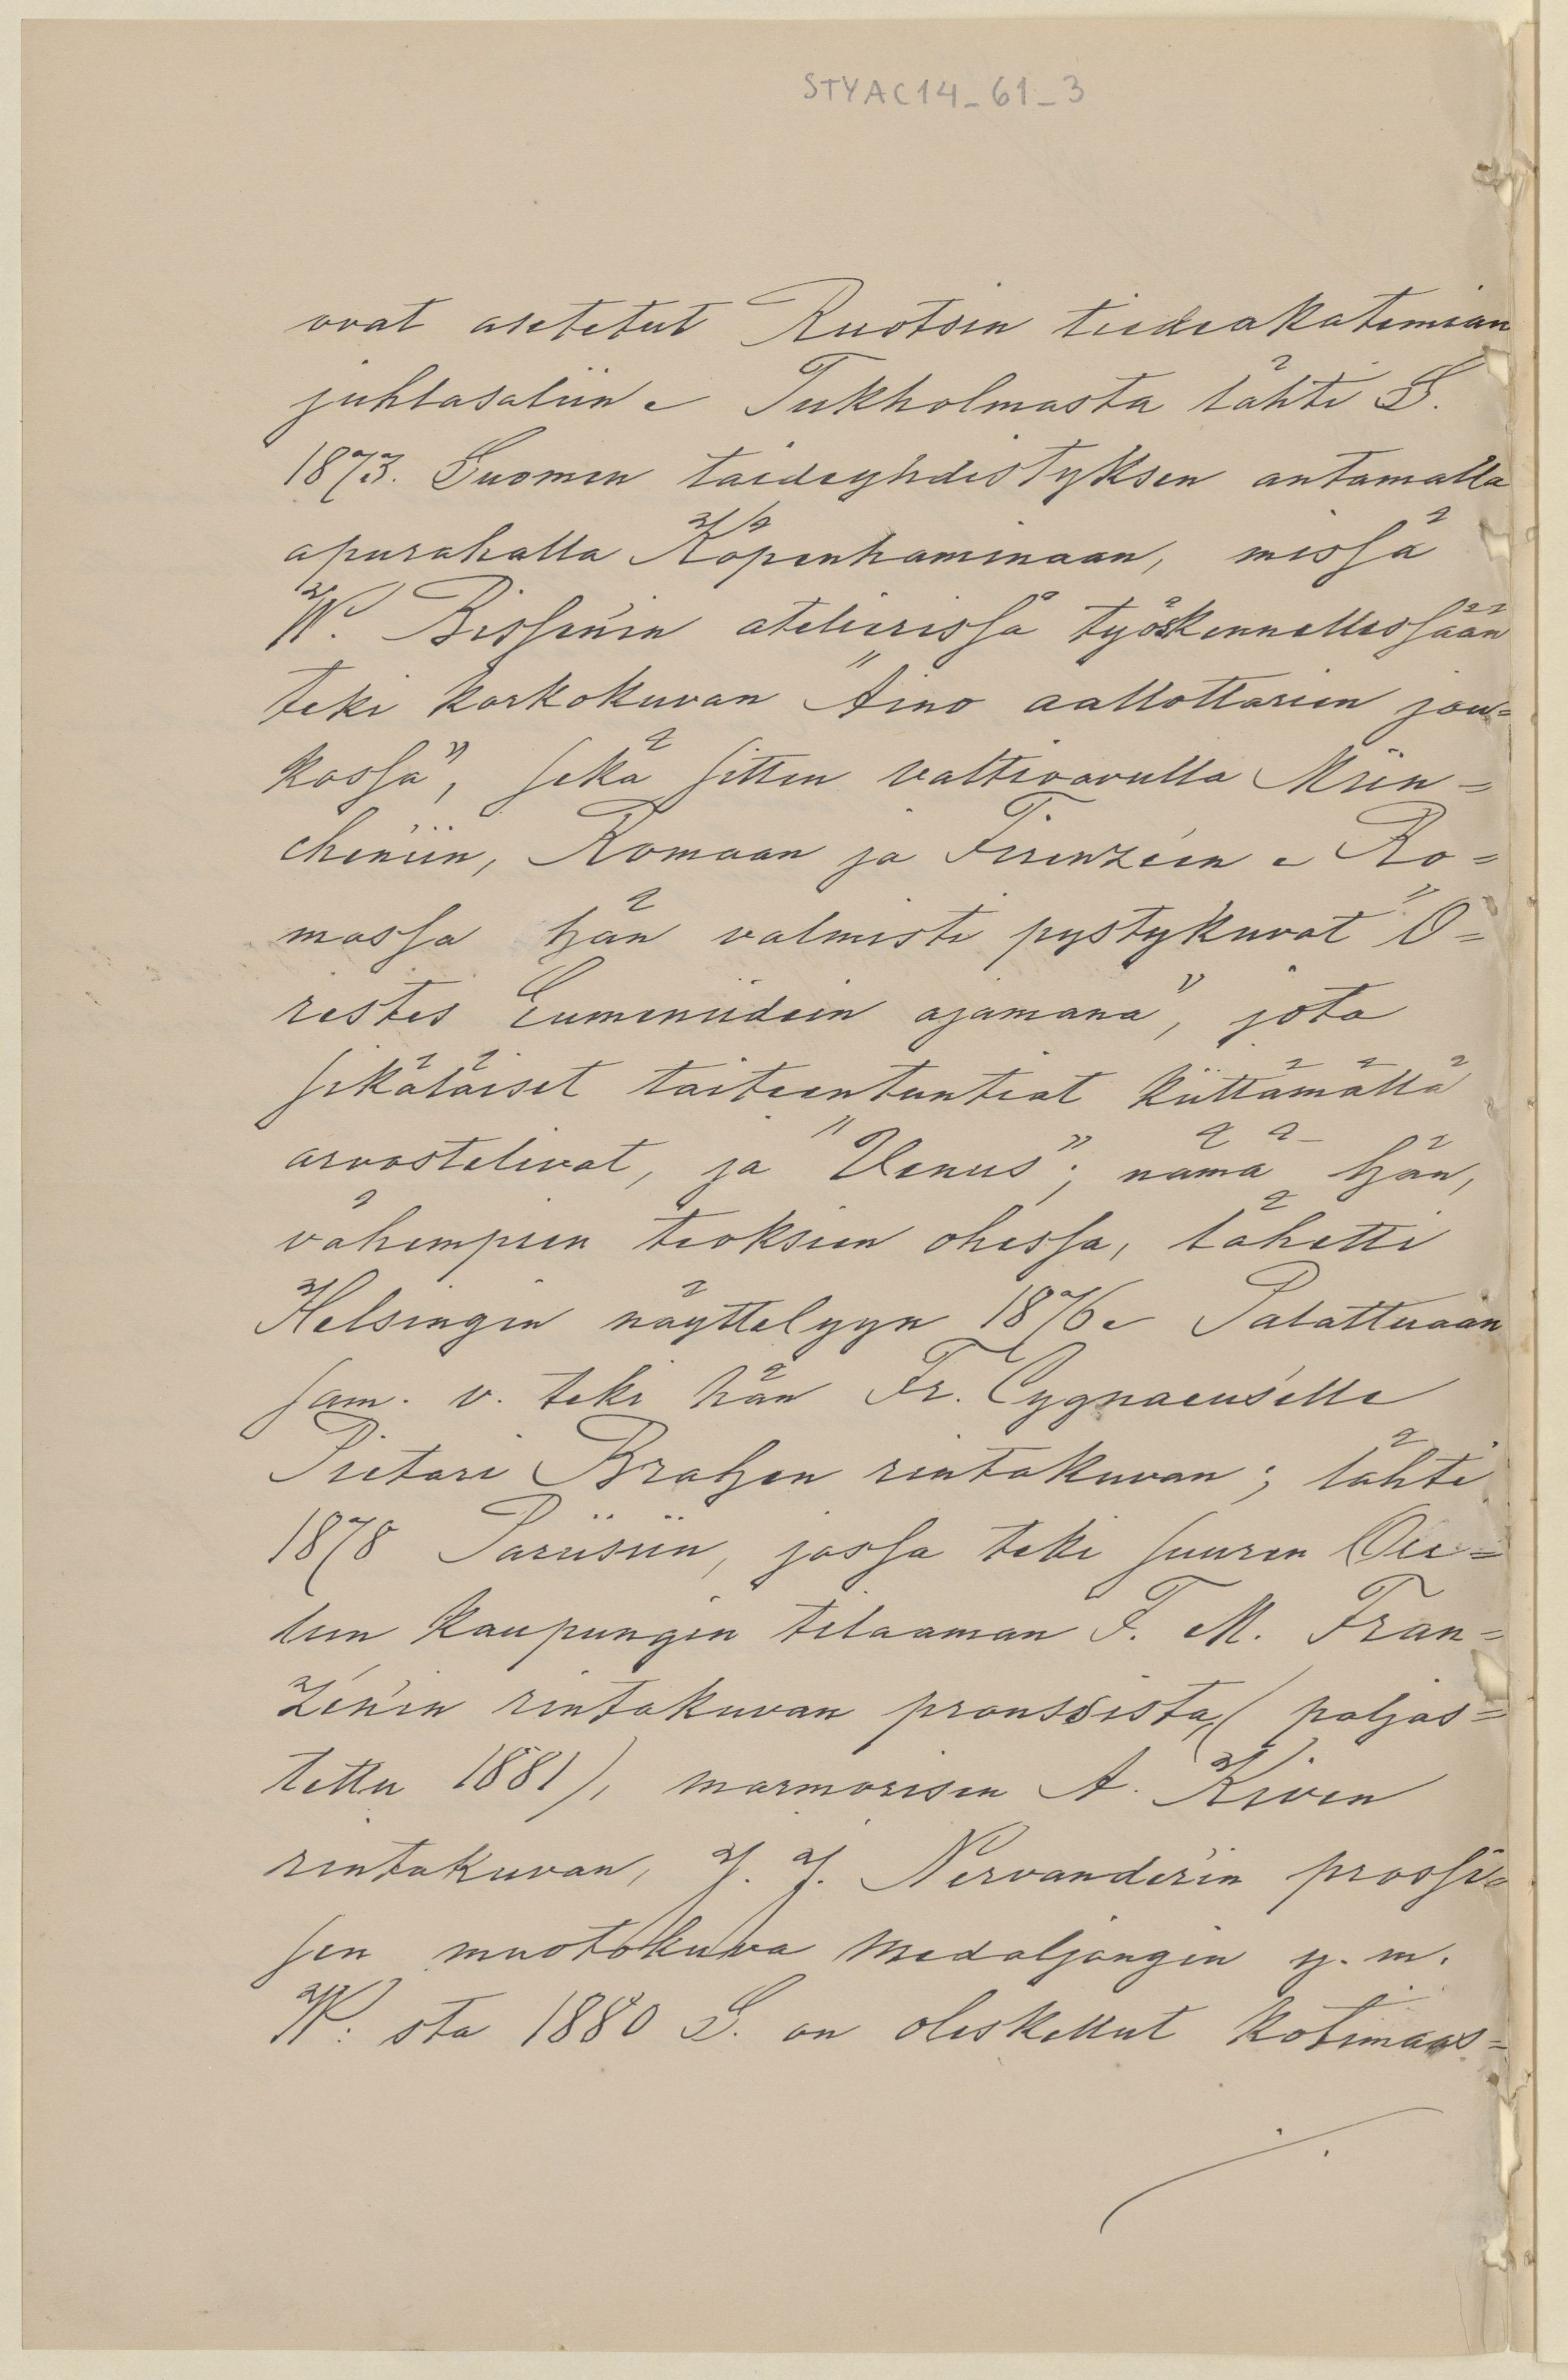 STYAC14_61_3
ovat asetetut Ruotsin tiedeakatemian
juhlasaliin. Tukholmasta lähti S.
1873. Suomen taideyhdistyksen antamalla
apurahalla Köpenhaminaan, missä
W. Bissen'in atelierissä työskennellessään
teki korkokuvan "Aino aallottarien jou=
kossa", sekä sitten valtioavulla Mün=
chen'iin, Romaan ja Firenze'en. Ro=
massa hän valmisti pystykuvat "O=
restes Eumeniidein ajamana", jota
sikäläiset taiteentuntiat kiittämällä
arvostelivat, ja "Venus"; nämä hän,
vähempien teoksien ohessa, lähetti
Helsingin näyttelyyn 1876. Palattuaan
sam. v. teki hän Fr. Cygnaeus'elle
Pietari Brahen rintakuvan; lähti
1878 Pariisiin, jossa teki suuren Ou=
lun kaupungin tilaaman F. M. Fran=
zén'in rintakuvan pronssista, (paljas=
tettu 1881), marmorisen A. Kiven
rintakuvan, J. J. Nervander'in prossi=
sen muotokuva medaljongin y. m.
W: sta 1880 S. on oleskellut kotimaas=